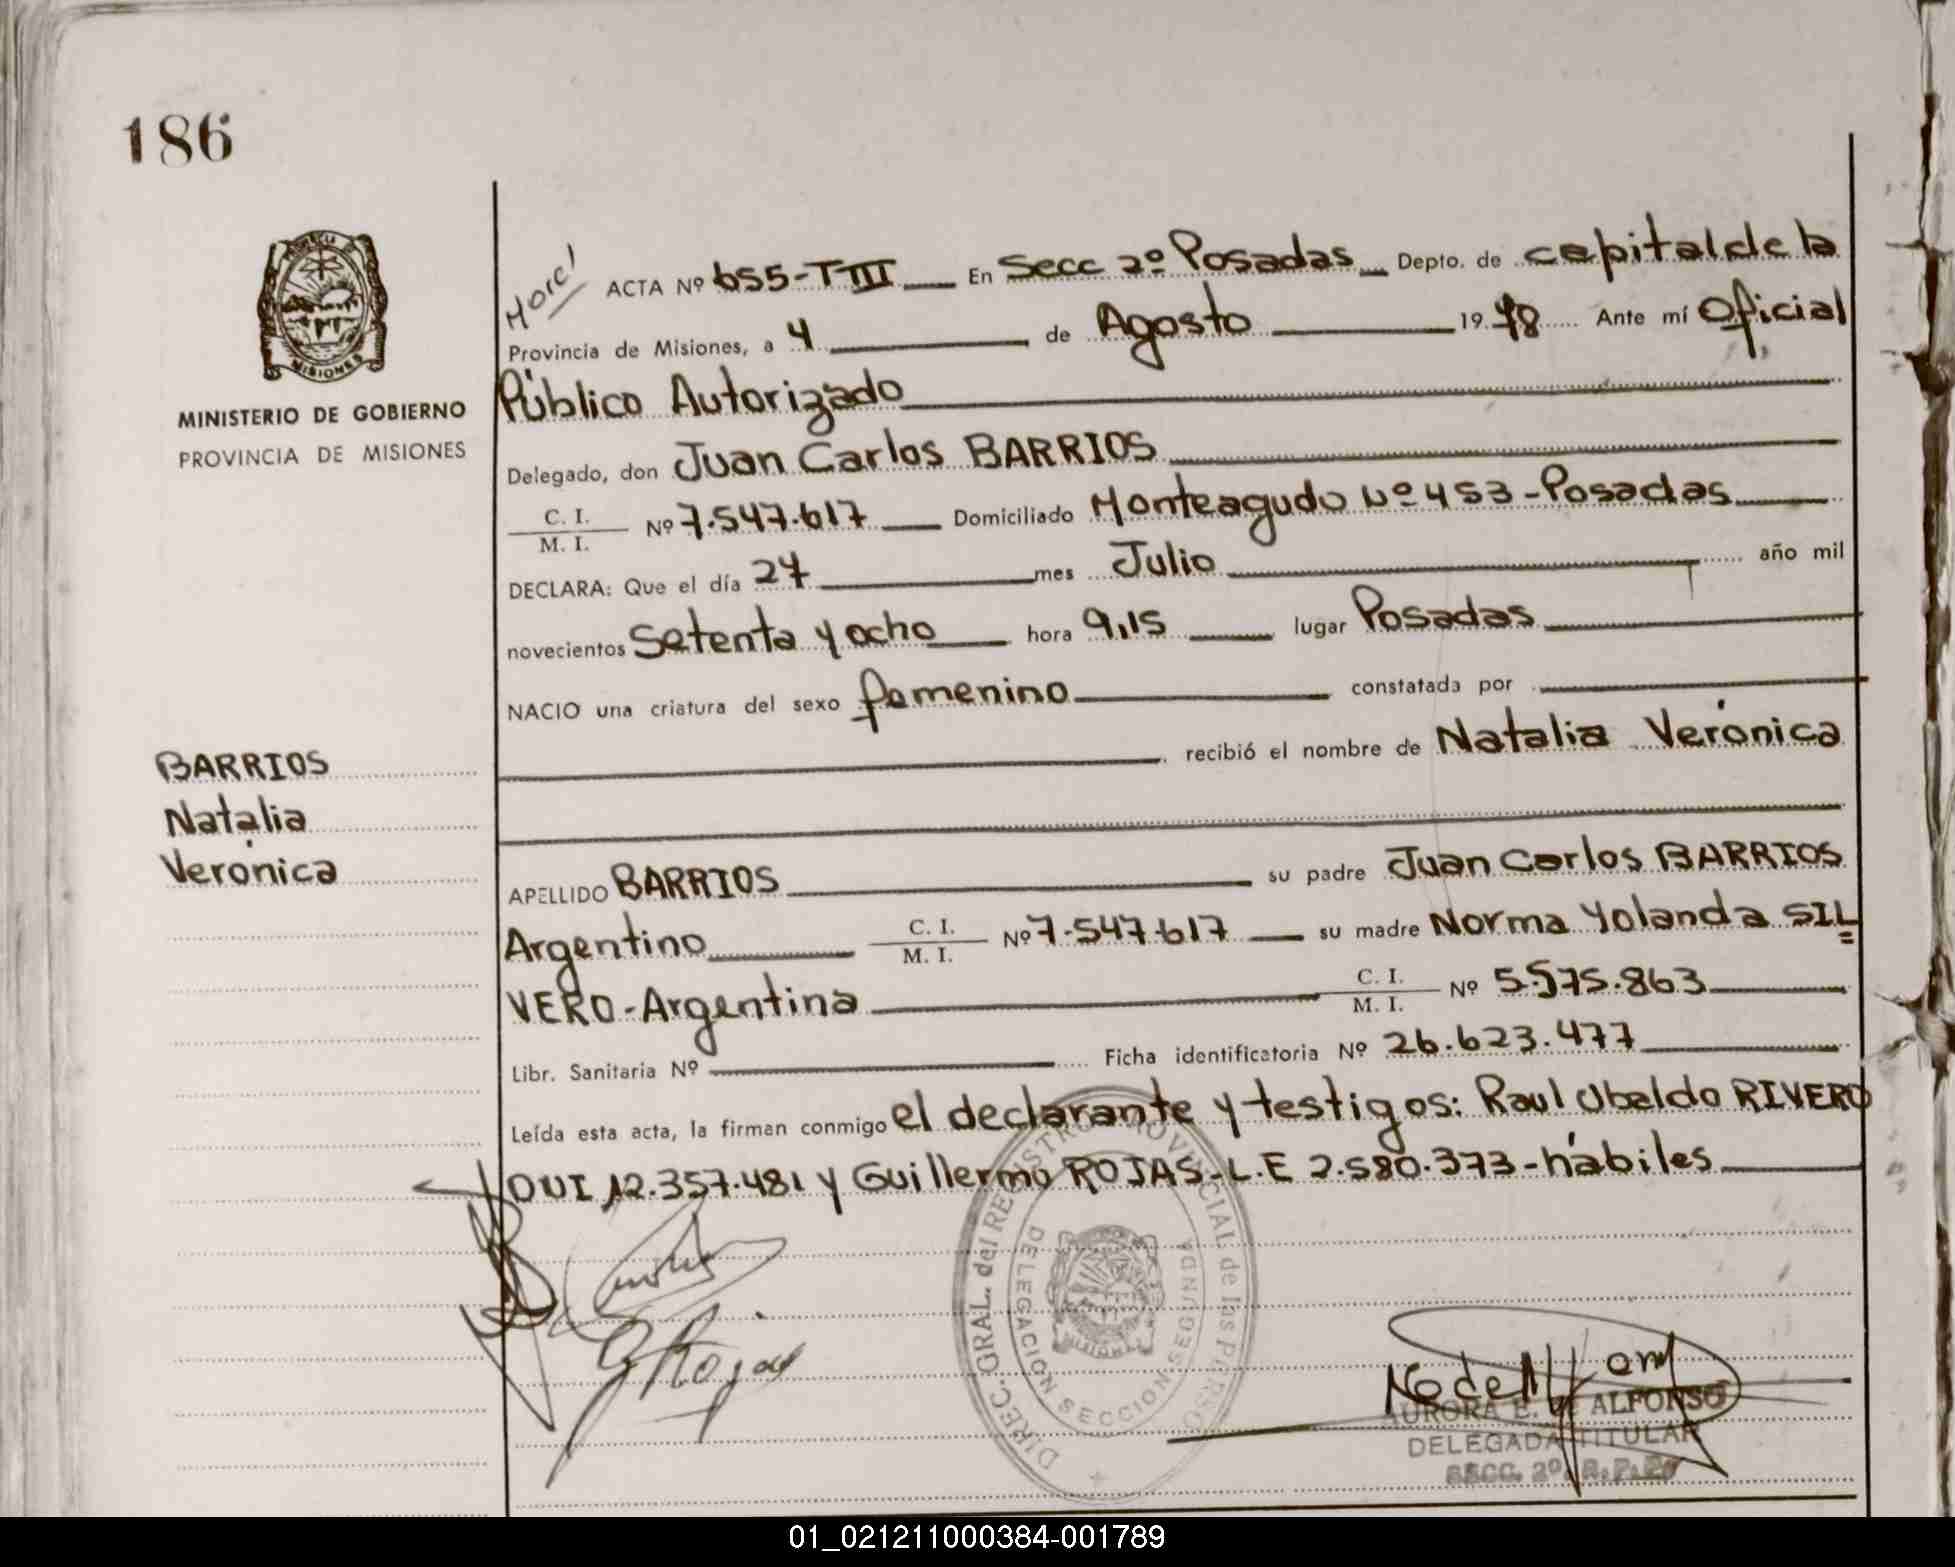 186
MINISTERIO DE GOBIERNO
PROVINCIA DE MISIONES
ACTA Nº 655-TIII En Secc 2º Posadas Depto. de capital de la
Provincia de Misiones, a 4 de Agosto 1978 Ante mí Oficial
Público Autorizado
Delegado, don Juan Carlos BARRIOS
C. I.
M. I. Nº 7.547.617 Domiciliado Monteagudo Nº 453-Posadas
DECLARA: Que el día 27 mes Julio año mil
novecientos Setenta y ocho hora 9,15 lugar Posadas
NACIO una criatura del sexo femenino constatada por
recibió el nombre de Natalia Verónica
BARRIOS
Natalia
Verónica
APELLIDO BARRIOS su padre Juan Carlos BARRIOS
Argentino C. I. M. I. Nº 7.547.617 su madre Norma Yolanda SIL=
VERO-Argentina C. I. M. I. Nº 5.575.863
Libr. Sanitaria Nº Ficha identificatoria Nº 26.623.477
Leída esta acta, la firman conmigo el declarante y testigos: Raul Ubaldo RIVERO
DUI 12.357.481 y Guillermo ROJAS-L.E 2.580.373-hábiles
DIREC. GRAL. del REGISTRO PROVINCIAL de las PERSONAS
DELEGACION SECCION SEGUNDA
G Rojas
AURORA E. de ALFONSO
DELEGADA TITULAR
SECC. 2º. R. P. P.
01_021211000384-001789